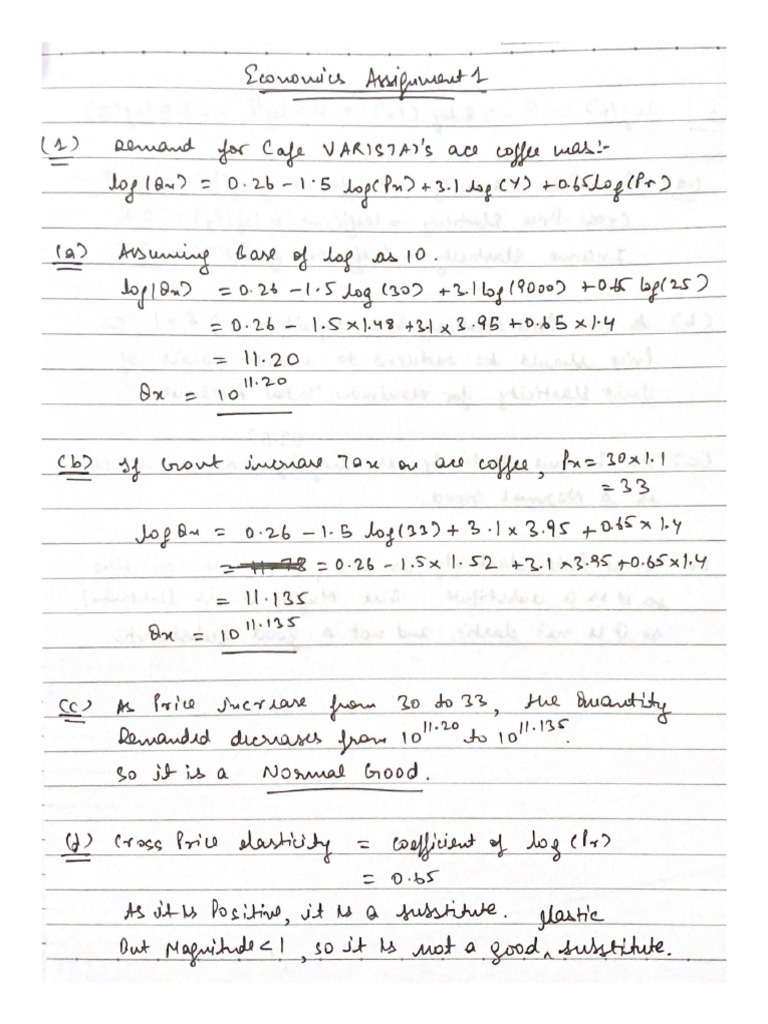 Economics Assignment 1
(1) Demand for Cafe VARISTA)'s ace coffee was:-
log(Qx) = 0.26 - 1.5 log(Px) + 3.1 log(Y) + 0.65 log(Pr)
(a) Assuming base of log as 10.
log(Qx) = 0.26 - 1.5 log(30) + 3.1 log(9000) + 0.65 log(25)
= 0.26 - 1.5 x 1.48 + 3.1 x 3.95 + 0.65 x 1.4
= 11.20
Qx = 10^11.20
(b) If Govnt increase Tax on ace coffee, Px = 30 x 1.1
= 33
log Qx = 0.26 - 1.5 log(33) + 3.1 x 3.95 + 0.65 x 1.4
= 0.26 - 1.5 x 1.52 + 3.1 x 3.95 + 0.65 x 1.4
= 11.135
Qx = 10^11.135
(c) As Price increase from 30 to 33, the Quantity
Demanded decreases from 10^11.20 to 10^11.135.
So it is a Normal Good.
(d) Cross Price elasticity = coefficient of log(Pr)
= 0.65
As it is Positive, it is a substitute.
But Magnitude < 1, so it is not a good elastic substitute.